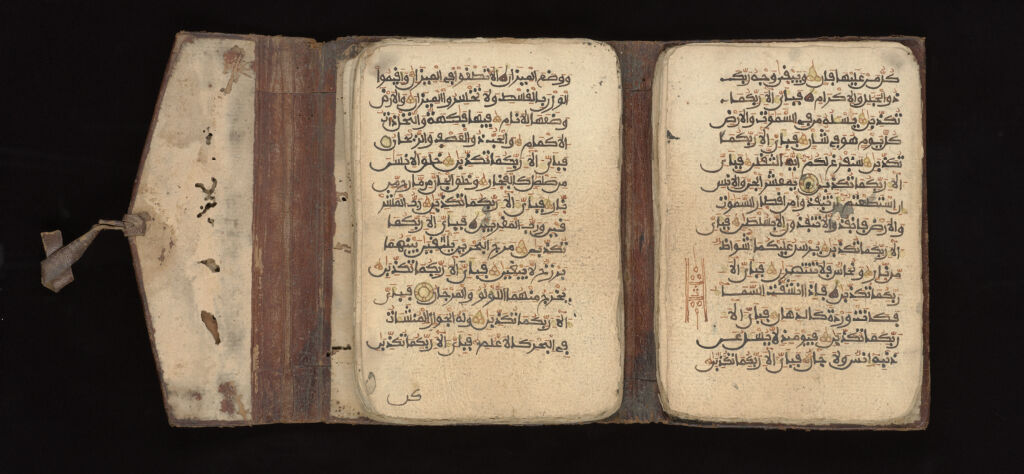 ووضع الميزان الا تطغوا في الميزان واقيموا
الوزن بالقسط ولا تخسروا الميزان والارض
وضعها للانام فيها فكهة والنخل ذات
الاكمام والحب ذو العصف والريحان
فباي الاء ربكما تكذبن خلق الانسن
من صلصل كالفخار وخلق الجان من مارج من
نار فباي الاء ربكما تكذبن رب المشر
قين ورب المغربين فباي الاء ربكما
تكذبن مرج البحرين يلتقين بينهما
برزخ لا يبغين فباي الاء ربكما تكذبن
يخرج منهما اللؤلؤ والمرجان فباي
الاء ربكما تكذبن وله الجوار المنشات
في البحر كالاعلم فباي الاء ربكما تكذبن
كل من عليها فان ويبقى وجه ربك
ذو الجلل والاكرام فباي الاء ربكما
تكذبن يسله من في السموت والارض
كل يوم هو في شان فباي الاء ربكما
تكذبن سنفرغ لكم ايه الثقلن فباي
الاء ربكما تكذبن يمعشر الجن والانس
ان استطعتم ان تنفذوا من اقطار السموت
والارض فانفذوا لا تنفذون الا بسلطن فباي
الاء ربكما تكذبن يرسل عليكما شواظ
من نار ونحاس فلا تنتصرن فباي الاء
ربكما تكذبن فاذا انشقت السماء
فكانت وردة كالدهان فباي الاء
ربكما تكذبن فيومئذ لا يسل عن
ذنبه انس ولا جان فباي الاء ربكما تكذبن